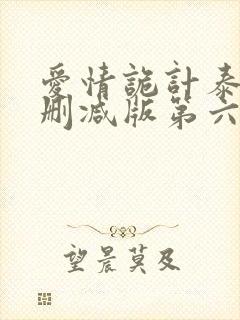 愛情詭計泰
删减版第六
望晨莫及